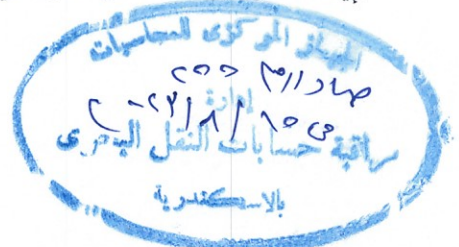 الجهاز المركزى للمحاسبات
صادر رقم ٢٥٥
إدارة
فى ١٥ / ٨ / ٢٠٢٣
مراقبة حسابات النقل البحرى
بالاسكندرية